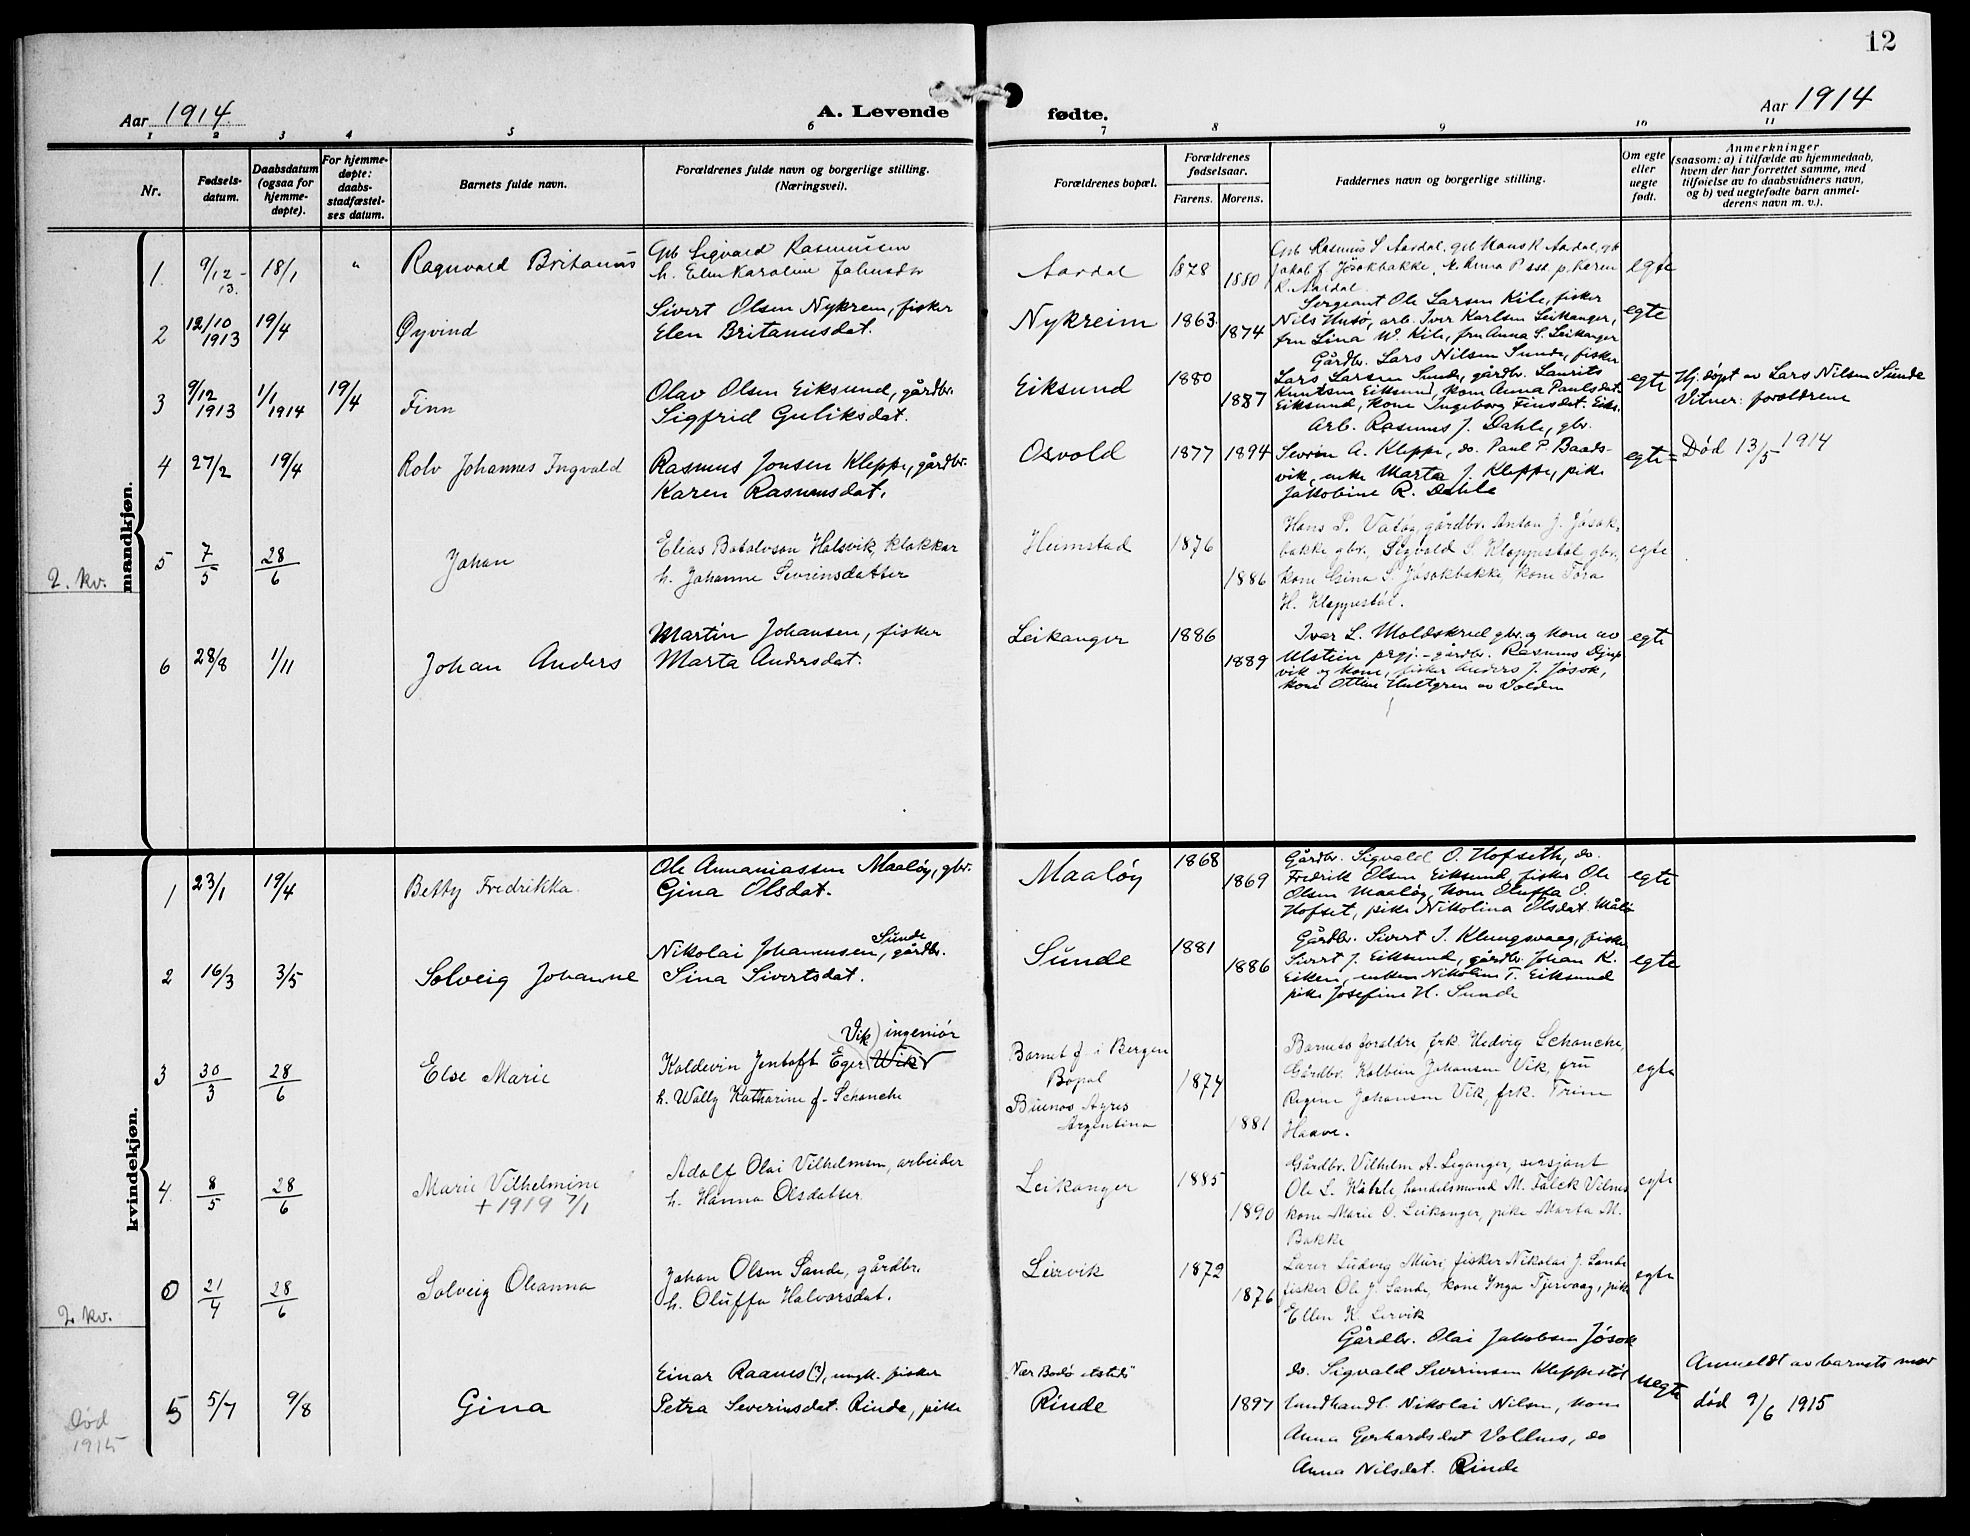 12
Aar 1914.
A. Levende fødte.
Aar 1914
1 2 3 4 5 6 7 8 9 10 11
Nr.
Fødsels-
datum.
Daabsdatum
(ogsaa for
hjemme-
døpte).
For hjemme-
døpte:
daabs-
stadfæstel-
ses datum.
Barnets fulde navn.
Forældrenes fulde navn og borgerlige stilling.
(Næringsvei).
Forældrenes bopæl.
Forældrenes
fødselsaar.
Farens. Morens.
Faddernes navn og borgerlige stilling.
Om egte
eller
uegte
født.
Anmerkninger
(saasom: a) i tilfælde av hjemmedaab,
hvem der har forrettet samme, med
tilføielse av to daabsvidners navn,
og b) ved uegtefødte barn anmel-
derens navn m. v.).
mandkjøn.
1. 9/12-13. 18/1 " Ragnvald Britanus
Gb Sigvald Rasmussen
h. Elen Karoline Johnsdr
Aardal 1878 1880
Gb Rasmus S Aardal, gb Hans R Aardal, gb
Jakob J Jøsokbakke, k. Anna P ssd p. Karen
R. Aardal
egte
2 12/10 1913 19/4 Øyvind
Sivert Olsen Nykrem, fisker
Elen Britanusdat.
Nykreim 1863. 1874
Sergeant Ole Larsen Kile, fisker
Nils Husø, arb. Iver Karlsen Leikanger,
fru Lina W. Kile, fru Anna S. Leikanger
egte
3 9/12 1913 1/1 1914 19/4 Finn
Olav Olsen Eiksund, gårdbr.
Sigfrid Guliksdat.
Eiksund 1880 1887
Gårdbr. Lars Nilsen Sunde, fisker
Lars Larsen Sunde, gårdbr. Laurits
Knutsen Eiksund, kone Anna Paulsdat.
Eiksund, kone Ingeborg Finsdat. Eiks.
egte
Hj. døpt av Lars Nilsen Sunde
Vitner: forældrene
4 27/2 19/4 Rolv Johannes Ingvald
Rasmus Jonsen Kleppe, gårdbr.
Karen Rasmusdat.
Osvold 1877 1894
Arb. Rasmus J. Dahle, gbr.
Sevrin A. Kleppe, do. Paul P. Baads-
vik, enke Marta J. Kleppe, pike
Jakobine R. Dahle
egte
Død 13/5 1914
2. kv.
5 7/5 28/6 Johan
Elias Botolvson Halsvik, klokkar
h. Johanne Sevrinsdatter
Heimstad 1876 1886
Hans P. Vatøy, gårdbr. Anton J. Jøsok,
bakke gbr., Sigvald S. Kleppestøl gbr,
kone Gsina S. Jøsokbakke, kone Tora
H. Kleppestøl.
egte
6 28/8 1/11 Johan Anders
Martin Johansen, fisker
Marta Andersdat.
Leikanger 1886 1889
Iver L. Moldskred gbr. og kone av
Ulstein prgj. - gårdbr. Rasmus Djup
vik og kone, fisker Anders J. Jøsok,
kone Otline Hultgren av Volden
egte
kvindekjøn.
1 23/1 19/4 Betty Fredrikka.
Ole Annaniassen Maaløy, gbr.
Gina Olsdat.
Maaløy 1868 1869
Gårdbr. Sigvald O. Hofseth, do.
Fredrik Olsen Eiksund, fisker Ole
Olsen Maaløy, kone Oluffa O.
Hofset, pike Nikolina Olsdat. Målø
egte
2 16/3 3/5 Solveig Johanne
Nikolai Johannesen Sunde, gårdbr.
Sina Sivertsdat.
Sunde 1881 1886
Gårdbr. Sivert I. Klungsvaag, fisker
Sivert J. Eiksund, gårdbr. Johan K.
Eiken, enken Nikoline T. Eiksund
pike Josefine H. Sunde
egte
3 30/3 28/6 Else Marie
Vik) ingeniør
Koldevin Jentoft Eger (Wik)
h. Wally Katharine f. Schanche
Barnet f. i Bergen
Bopæl
Buenos Ayres
Argentina
1874 1881
Barnets foreldre, frk. Hedvig Schanche,
Gårdbr. Kolbein Johansen Vik, fru
Regine Johansen Vik, frk. Trine
Haave.
egte
4. 8/5 28/6 Marie Vilhelmine
+ 1919 7/1
Adolf Olai Vilhelmsen, arbeider
h. Hanna Olsdatter
Leikanger 1885 1890
Gårdbr. Vilhelm A. Leganger, sersjant
Ole L. Kåhrle, handelsmand M. Falck Vilnes
kone Marie O. Leikanger, pike Marta M.
Bakke
egte
0 21/4 28/6 Solveig Oleanna
Johan Olsen Sande, gårdbr.
h. Oluffa Halvorsdat.
Leirvik 1872 1876
Lærer Ludvig Muri, fisker Nikolai J. Sande
fisker Ole J. Sande, kone Inga Tjervaag, pike
Ellen K. Lervik
egte
2. kv.
5 5/7 9/8 Gina
Einar Raanes (?), ungk. fisker
Petra Severinsdat. Rinde, pike
"Nær Bodø etsteds"
Rinde 1897
Gårdbr. Olai Jakobsen Jøsok
do. Sigvald Severinsen Kleppestøl
Landhandl. Nikolai Nilsen, kone
Anna Gerhardsdat Voldnes, do
Anna Nilsdat. Rinde
uegte
Anmeldt av barnets mor
død 9/6 1915
Død
1915